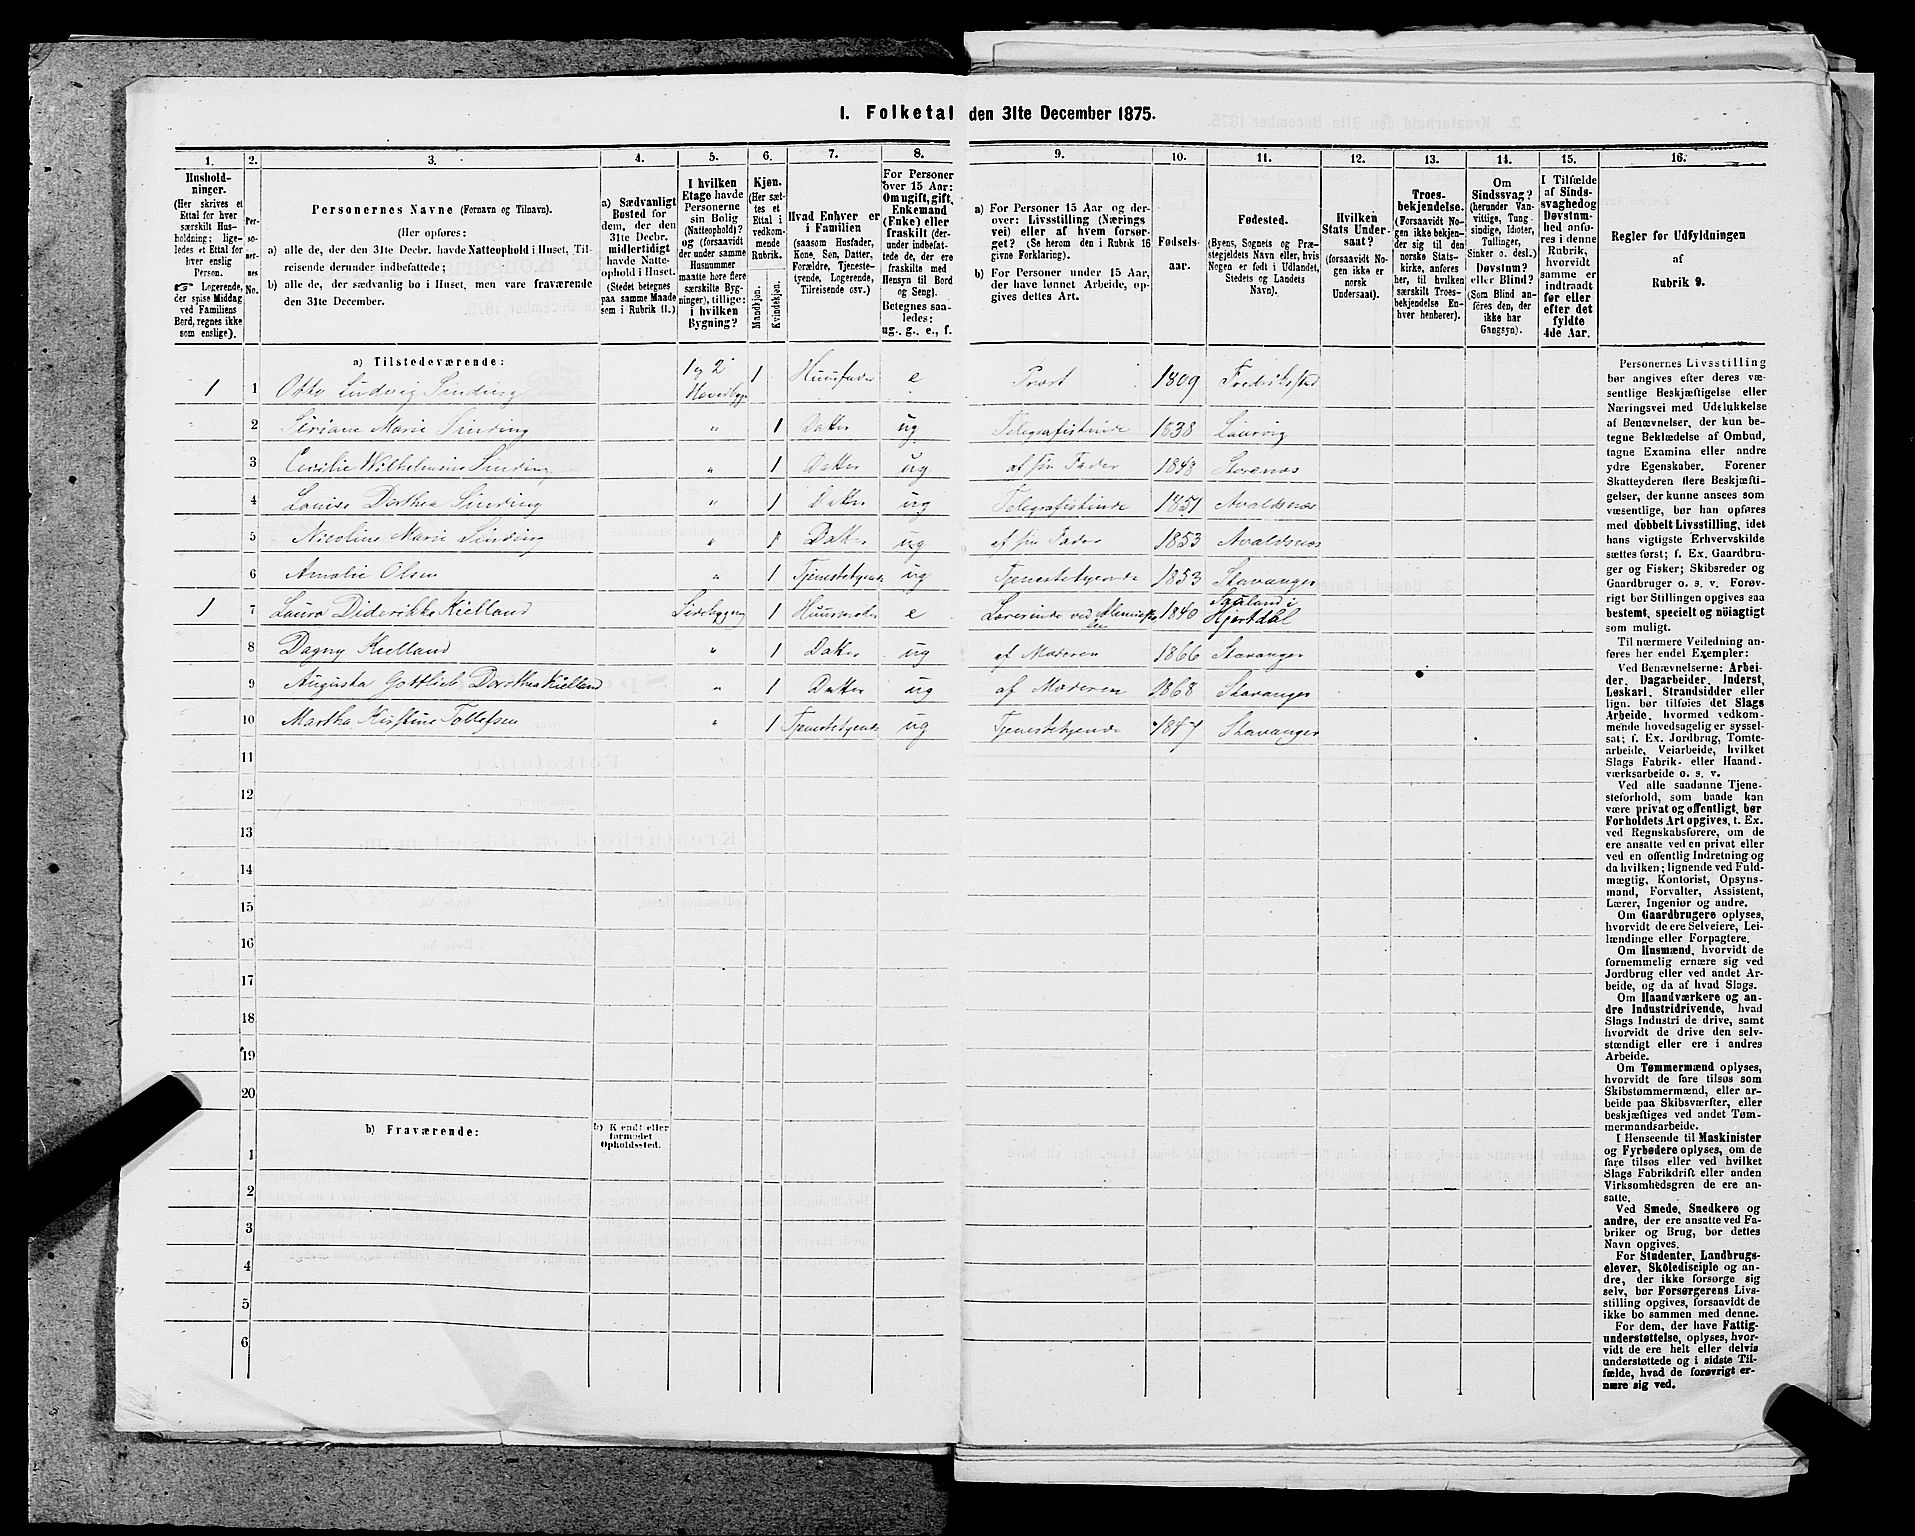 1. Folketal den 31te December 1875.
1.
Hushold-
ninger.
(Her skrives et
Ettal for hver
særskilt Hus-
holdning; lige-
ledes et Ettal for
hver enslig
Person.
☞ Logerende,
der spise Middag
ved Familiens
Bord, regnes ikke
som enslige).
2.
Per-
so-
ner-
nes
No.
3.
Personernes Navne (Fornavn og Tilnavn).
(Her opføres:
a) alle de, der den 31te Decbr. havde Natteophold i Huset, Til-
reisende derunder indbefattede;
b) alle de, der sædvanlig bo i Huset, men vare fraværende
den 31te December.
4.
a) Sædvanligt
Bosted for
dem, der den
31te Decbr.
midlertidigt
havde Natte-
ophold i Huset.
(Stedet betegnes
paa samme Maade
som i Rubrik 11.)
5.
I hvilken
Etage havde
Personerne
sin Bolig
(Natteophold)?
og (forsaavidt
der under samme
Husnummer
maatte høre flere
særskilte Byg-
ninger), tillige:
i hvilken
Bygning?
6.
Kjøn.
(Her sæt-
tes et
Ettal i
vedkom-
mende
Rubrik.
Mandkjøn.
Kvindekjøn.
7.
Hvad Enhver er
i Familien
(saasom Husfader,
Kone, Søn, Datter,
Forældre, Tjeneste-
tyende, Logerende,
Tilreisende osv.)
8.
For Personer
over 15 Aar:
Om ugift, gift,
Enkemand
(Enke) eller
fraskilt (der-
under indbefat-
tede de, der ere
fraskilte med
Hensyn til Bord
og Seng).
Betegnes saa-
ledes:
ug., g., e., f.
9.
a) For Personer 15 Aar og der-
over: Livsstilling (Nærings
vei) eller af hvem forsør-
get? (Se herom den i Rubrik 16
givne Forklaring).
b) For Personer under 15 Aar,
der have lønnet Arbeide, op-
gives dettes Art.
10.
Fødsels-
aar.
11.
Fødested.
(Byens, Sognets og Præ-
stegjeldets Navn eller, hvis
Nogen er født i Udlandet,
Stedets og Landets
Navn).
12.
Hvilken
Stats Under-
saat?
(forsaavidt No-
gen ikke er
norsk
Undersaat).
13.
Troes-
bekjendelse.
(Forsaavidt No-
gen ikke bekjen-
der sig til den
norske Stats-
kirke, anføres
her, til hvilken
særskilt Troes-
bekjendelse En-
hver henhører).
14.
Om
Sindssvag?
(herunder Van-
vittige, Tung-
sindige, Idioter,
Tullinger,
Sinker o. desl.)
Døvstum?
eller Blind?
(Som Blind an-
føres den, der
ikke har
Gangsyn).
15.
I Tilfælde
af Sinds-
svaghed og
Døvstum-
hed anfø-
res i denne
Rubrik,
hvorvidt
samme er
indtraadt
før eller
efter det
fyldte
4de Aar.
16.
Regler for Udfyldningen
af
Rubrik 9.
a) Tilstedeværende:
1 1 Otto Ludvig Sinding 1 og 2 Hovedbygn 1 Huusfader e Præst 1809 Fredrikstad
2 Siriane Marie Sinding " 1 Datter ug Telegrafistinde 1838 Laurvig
3 Cecilie Wilhelmine Sinding " 1 Datter ug af sin Fader 1848
4 Louise Dorthea Sinding " 1 Datter ug Telegrafistinde 1851 Avaldsnæs
5 Nicoline Marie Sinding " 1 Datter ug af sin Fader 1853 Avaldsnæs
6 Amalie Olsen " 1 Tjenestetyende ug Tjenestetyende 1853 Stavanger
1 7 Laura Diderikke Kielland Sidebygning 1 Huusmoder e Lærerinde ved 1840 Sauland i Hjertdal
8 Dagny Kielland " 1 Datter ug af Moderen 1866 Stavanger
9 Augusta Gottlieb Dorothea Kielland " 1 Datter ug af Moderen 1868 Stavanger
10 Martha Kirstine Tollefsen " 1 Tjenestetyende ug Tjenestetyende 1847 Stavanger
11
12
13
14
15
16
17
18
19
20
b) Fraværende:
b) Kjendt eller
formodet
Opholdssted.
1
2
3
4
5
6
Personernes Livsstilling
bør angives efter deres væ-
sentlige Beskjæftigelse eller
Næringsvei med Udelukkelse
af Benævnelser, der kun be-
tegne Beklædelse af Ombud,
tagne Examina eller andre
ydre Egenskaber. Forener
Skatteyderen flere Beskjæfti-
gelser, der kunne ansees som
væsentlige, bør han opføres
med dobbelt Livsstilling, idet
hans vigtigste Erhvervskilde
sættes først; f. Ex. Gaardbru-
ger og Fisker; Skibsreder og
Gaardbruger o. s. v. Forøv-
rigt bør Stillingen opgives saa
bestemt, specielt og nöiagtigt
som muligt.
Til nærmere Veiledning an-
føres her endel Exempler:
Ved Benævnelserne: Arbei-
der, Dagarbeider, Inderst,
Løskarl, Strandsidder eller
lign. bør tilføies det Slags
Arbeide, hvormed vedkom-
mende hovedsagelig er syssel-
sat; f. Ex. Jordbrug, Tomte-
arbeide, Veiarbeide, hvilket
Slags Fabrik- eller Haand-
værksarbeide o. s. v.
Ved alle saadanne Tjene-
steforhold, som baade kan
være privat og offentligt, bør
Forholdets Art opgives, t. Ex.
ved Regnskabsførere, om de
ere ansatte ved en privat eller
ved en offentlig Indretning og
da hvilken; lignende ved Fuld-
mægtig, Kontorist, Opsyns-
mand, Forvalter, Assistent,
Lærer, Ingeniør og andre.
Om Gaardbrugere oplyses,
hvorvidt de ere Selveiere, Lei-
lændinge eller Forpagtere.
Om Husmænd, hvorvidt de
fornemmelig ernære sig ved
Jordbrug eller ved andet Ar-
beide, og da af hvad Slags.
Om Haandværkere og an-
dre Industridrivende, hvad
Slags Industri de drive, samt
hvorvidt de drive den selv-
stændigt eller ere i andres
Arbeide.
Om Tømmermænd oplyses,
hvorvidt de fare tilsøs som
Skibstømmermænd, eller ar-
beide paa Skibsværfter, eller
beskjæftiges ved andet Tøm-
mermandsarbeide.
I Henseende til Maskinister
og Fyrbødere oplyses, om de
fare tilsøs eller ved hvilket
Slags Fabrikdrift eller anden
Virksomhedsgren de ere an-
satte.
Ved Smede, Snedkere og
andre, der ere ansatte ved Fa-
briker og Brug, bør dettes
Navn opgives.
For Studenter, Landbrugs-
elever, Skoledisciple og an-
dre, der ikke forsørge sig
selv, bør Forsørgerens Livs-
stilling opgives, forsaavidt de
ikke bo sammen med denne.
For dem, der have Fattig-
understøttelse, oplyses, hvor-
vidt de ere helt eller delvis
understøttede og i sidste Til-
fælde, hvad de forøvrigt er-
nære sig ved.